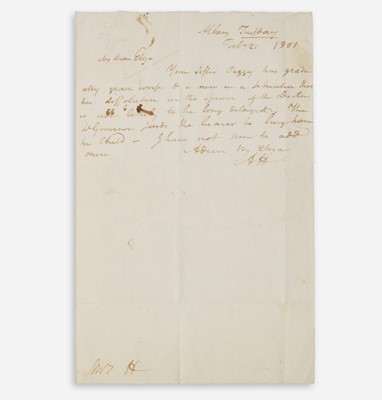 Albany Tuesday
Feby 25 1801
My Dear Eliza
Your Sister Peggy has gradu
ally grown worse & is now in a situation that
her dissolution in the opinion of the Doctor
is not likely to be long delayed. The
Governor sends the bearer to bring home
her Child – I have not time to add
more Adieu My Eliza
AH
Mrs H